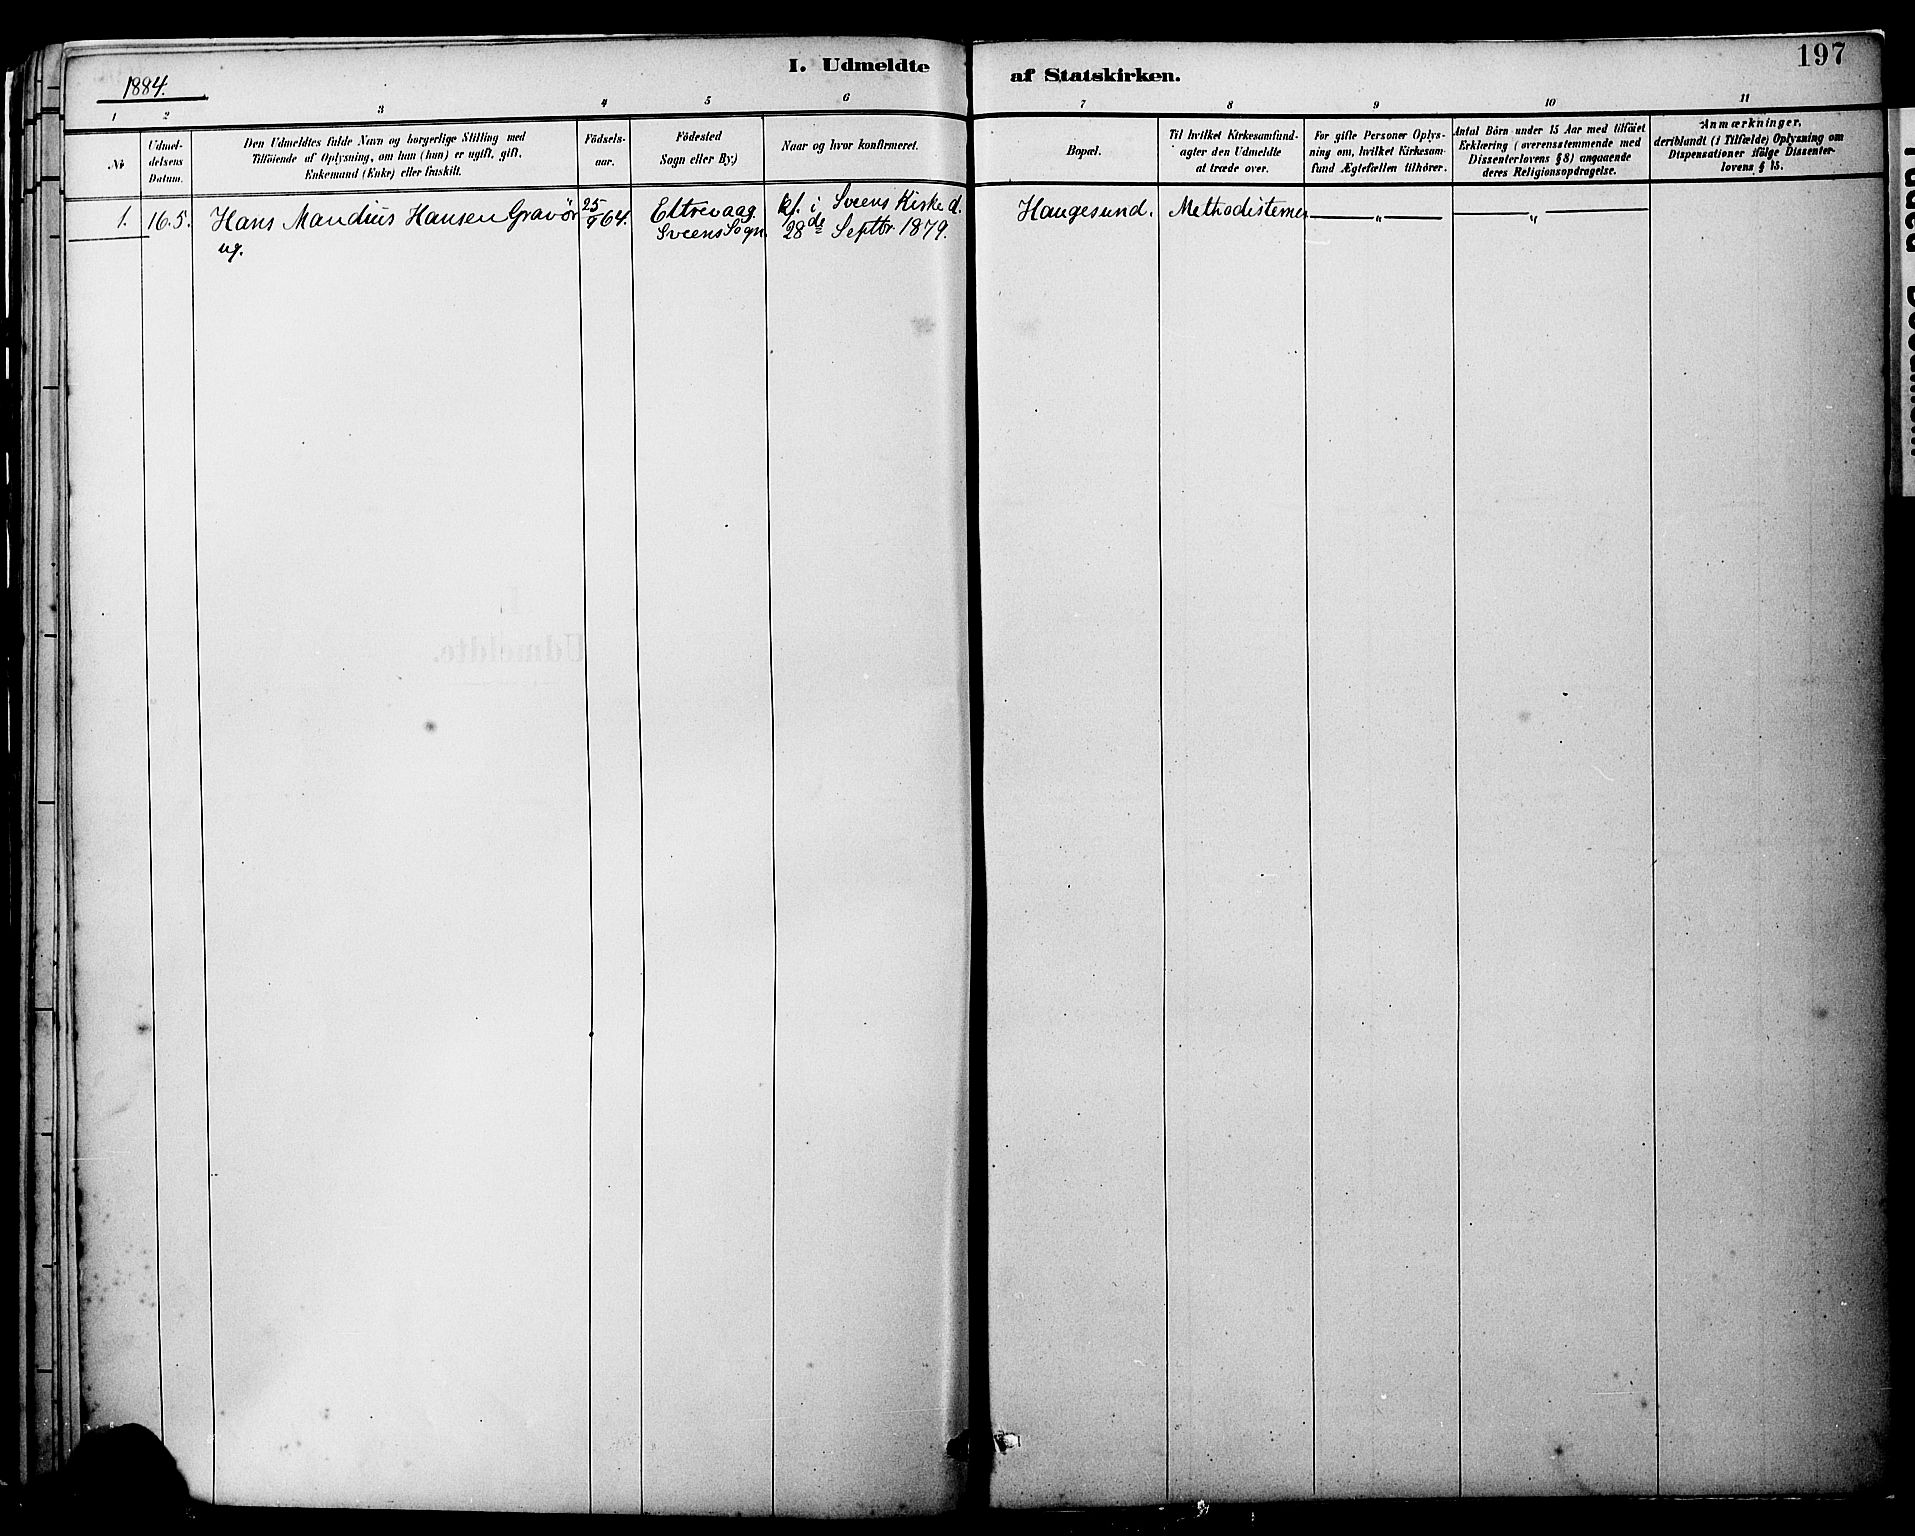 197
1884.
I. Udmeldte
af Statskirken.
1 2 3 4 5 6
7 8 9 10 11
No
Udmel-
delsens
Datum.
Den Udmeldtes fulde Navn og borgerlige Stilling med
Tilföiende af Oplysning, om han (hun) er ugift, gift,
Enkemand (Enke) eller fraskilt.
Födsels-
aar.
Födested
Sogn eller By.)
Naar og hvor konfirmeret.
Bopæl.
Til hvilket Kirkesamfund-
agter den Udmeldte
at træde over.
For gifte Personer Oplys-
ning om, hvilket Kirkesam-
fund Ægtefællen tilhörer.
Antal Börn under 15 Aar med tilföiet
Erklæring (overensstemmende med
Dissenterlovens § 8) angaaende
deres Religionsopdragelse.
Anmærkninger,
deriblandt (i Tilfælde) Oplysning om
Dispensationer ifölge Dissenter-
lovens § 15.
1. 16.5. Hans Mandius Hansen Gravör
ug.
25/9 64.
Eltrevaag
Sveens Sogn.
kf. i Sveens Kirke d.
28de Septbr 1879.
Haugesund.
Methodisternes
— „ —
— „ —
Udmeldte.